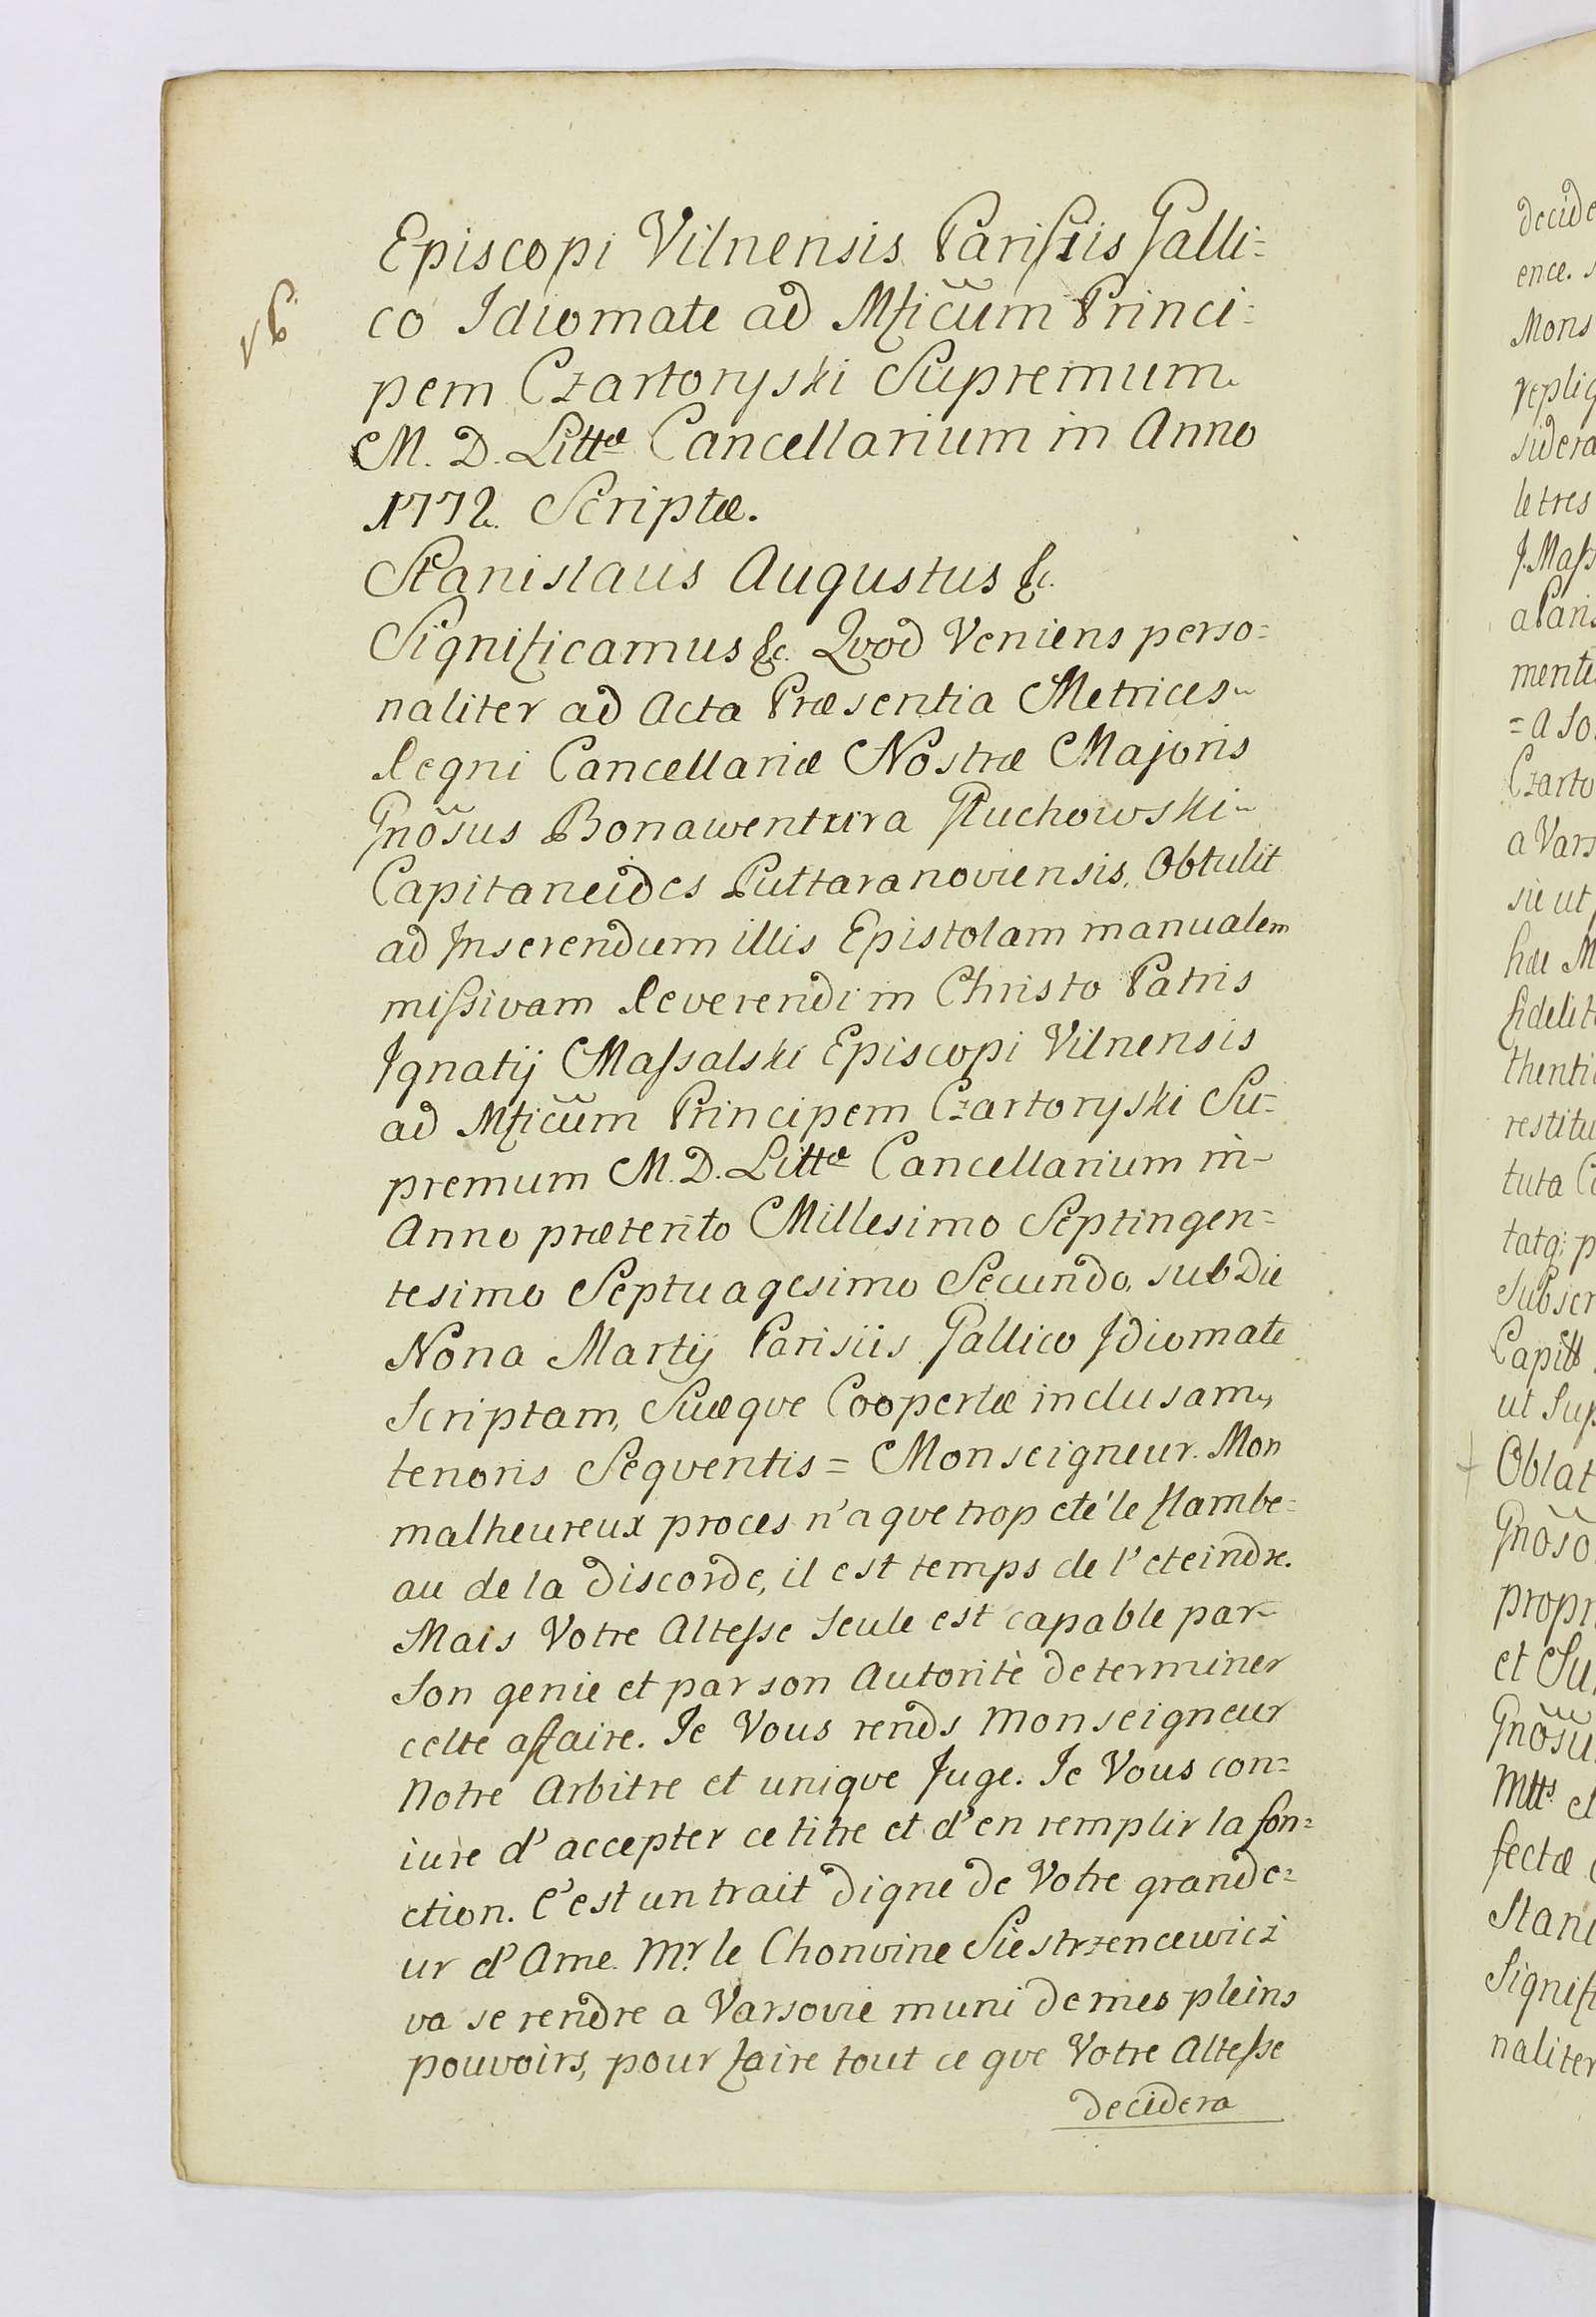 Episcopi Vilnensis Parisiis Galli=
co Idiomate ad Mficum Princi=
pem Czartoryski Supremum
M. D. Littæ Cancellarium in Anno
1772. Scriptæ.
Stanislaus Augustus &c.
Significamus &c. Qvod Veniens perso=
naliter ad Acta Præsentia Metrices
Regni Cancellariæ Nostræ Majoris
Gnosus Bonawentura Głuchowski
Capitaneides Puttaranoviensis, Obtulit
ad Inserendum illis Epistolam manualem
missivam Reverendi in Christo Patris
Ignatij Massalski Episcopi Vilnensis
ad Mficum Principem Czartoryski Su=
premum M. D. Littæ Cancellarium in
Anno præterito Millesimo Septingen=
tesimo Septuagesimo Secundo, sub Die
Nona Martij Parisiis Gallico Idiomate
Scriptam, Suæqve Coopertæ inclusam,
tenoris Seqventis = Monseigneur. Mon
malheureux proces n'a qve trop eté le flambe=
au de la Discorde, il est temps de l'eteindre.
Mais Votre Altesse Seule est capable par
Son genie et par son Autoritè determiner
cette affaire. Je Vous rends Monseigneur
Notre Arbitre et uniqve Juge. Je Vous con=
iure d'accepter ce titre et d'en remplir la fon=
ction. C'est un trait Digne de Votre grande=
ur d'Ame. Mr. le Chonoine Siestrzencewicz
va se rendre a Varsovie muni de mes pleins
pouvoirs, pour faire tout ce qve Votre Altesse
decidera
decide
ence.
Mons
repliq
sidera
letres
J. Mass
a Paris
mente
= a So
Czarto
a Vars
sie ut
hæ M
fidelit
thenti
restitu
tuta C
tatq; p
Subscr
Capitt
ut Sup
Oblat
Gnoso
propr
et Su
Gnosu
Mtts et
fectæ
Stani
Signifi
naliter